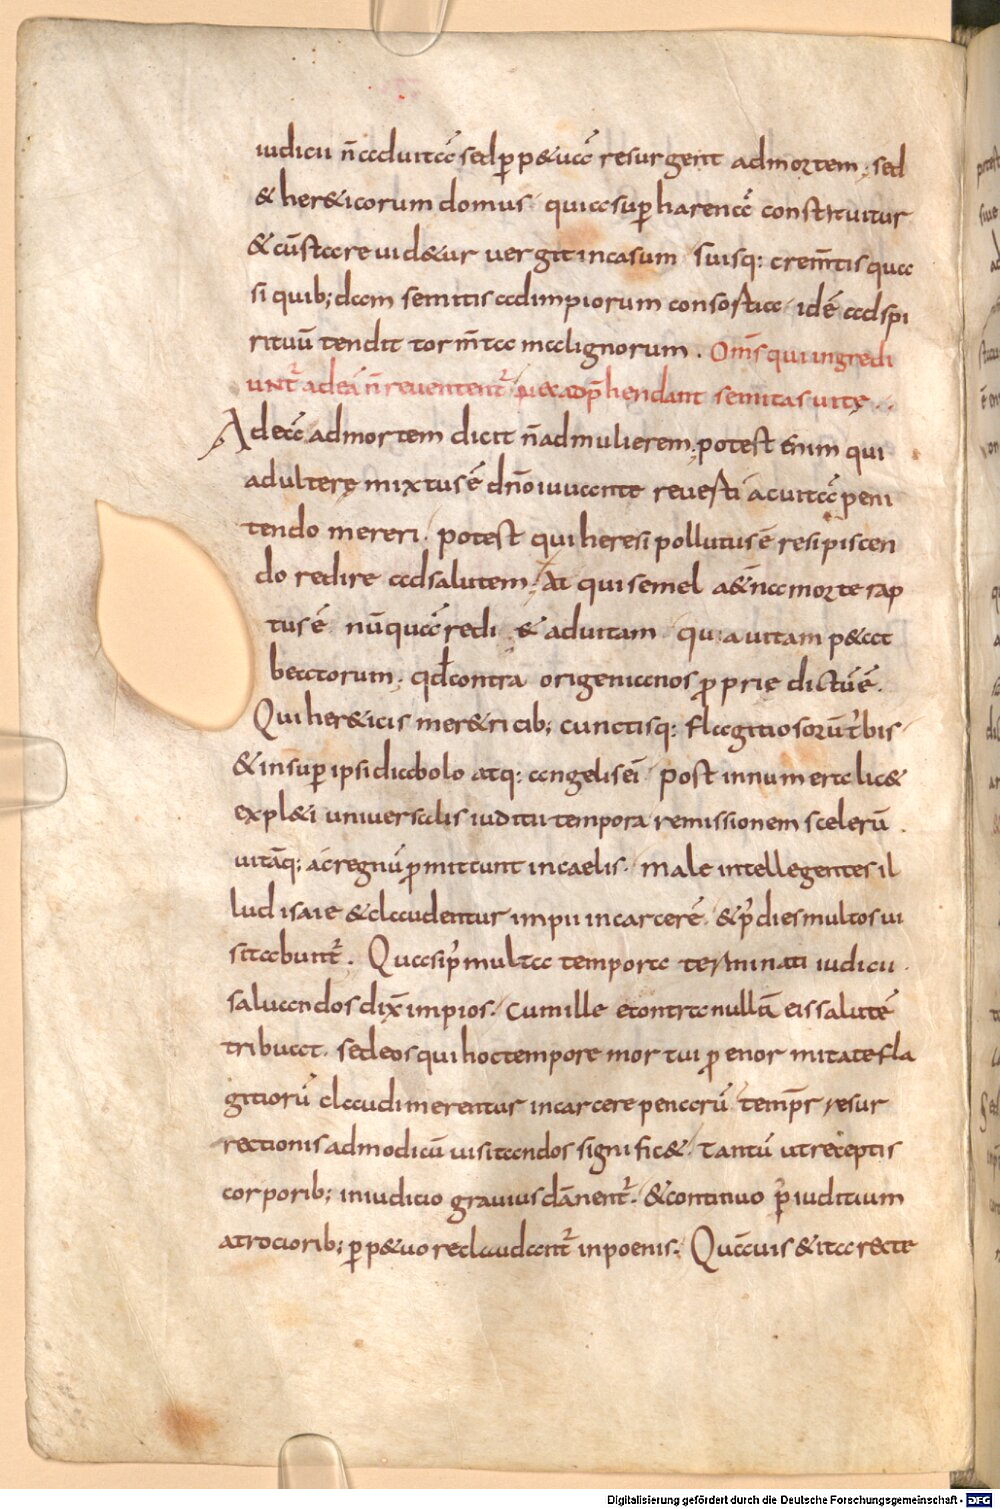 iudicii n̄ ad uitā sed ꝑp&uā resurgent ad mortem; sed
& her&icorum domus · quia suꝑ harenā constituitur
& cū stare uid&ur uergit in casum · suisq: crem̄tis quasi
si quib; dam semitis ad impiorum consortia · idē ad spi
rituū tendit torm̄ta malignorum . Om̄s qui ingredi
unt̄ ad eā n̄ reuertent̄ nec adp̄hendant semitas uitę .
Ad eā ad mortem dicit n̄ ad mulierem; potest enim qui
adulterę mixtus ē dn̄o iuuante reuerti ac uitā peni
tendo mereri · potest qui heresi pollutus ē resipiscen
do redire ad salutem · At qui semel a&n̄a morte rap
tus ē nūquā redi & ad uitam · qui a uitam p&at
beatorum · qđ contra origenianos ꝓprie dictū ē .
Qui her&icis mer&ricib; cunctisq: flagitiosorū t̄bis
& insuꝑ ipsi diabolo atq: angelis eī · post innumera lic&
expl&i uniuersalis iuditii tempora remissionem scelerū .
uitāq; ac regnū ꝓmittunt in caelis · male intellegentes il
lud isaie & claudentur impii in carcerē · & p̄ dies multos ui
sitabunt̄ . Quasi p̄ multa tempora terminati iudicii ·
saluandos dix̄ impios · cum ille econtra nullā eis salutē
tribuat · sed eos qui hoc tempore mortui ꝓ enormitate fla
gitiorū claudi merentur in carcere penarū temp̄r resur
rectionis ad modicū uisitandos signific& · Tantū ut receptis
corporib; in iudicio grauius dānent̄ · & continuo p̄ iuditium
atrociorib; ꝑp&uo recludant̄ in poenis · Quāuis & ita recte
Digitalisierung gefördert durch die Deutsche Forschungsgemeinschaft - DFG